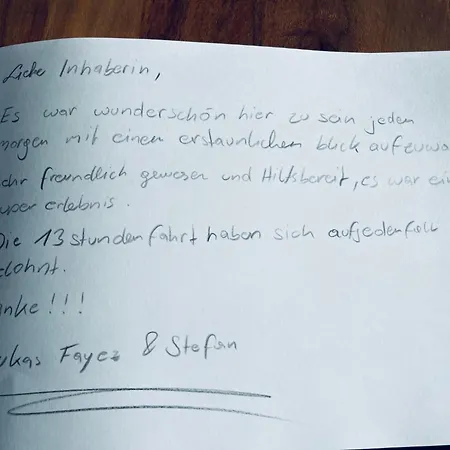 Liebe Inhaberin,
Es war wunderschön hier zu sein jeden
morgen mit einen erstaunlichen blick aufzuwa
ehr freundlich gewesen und Hilfsbereit, es war ein
uper erlebnis.
Die 13 stunden fahrt haben sich aufjedenfall
elohnt.
anke!!!
ukas Fayez & Stefan